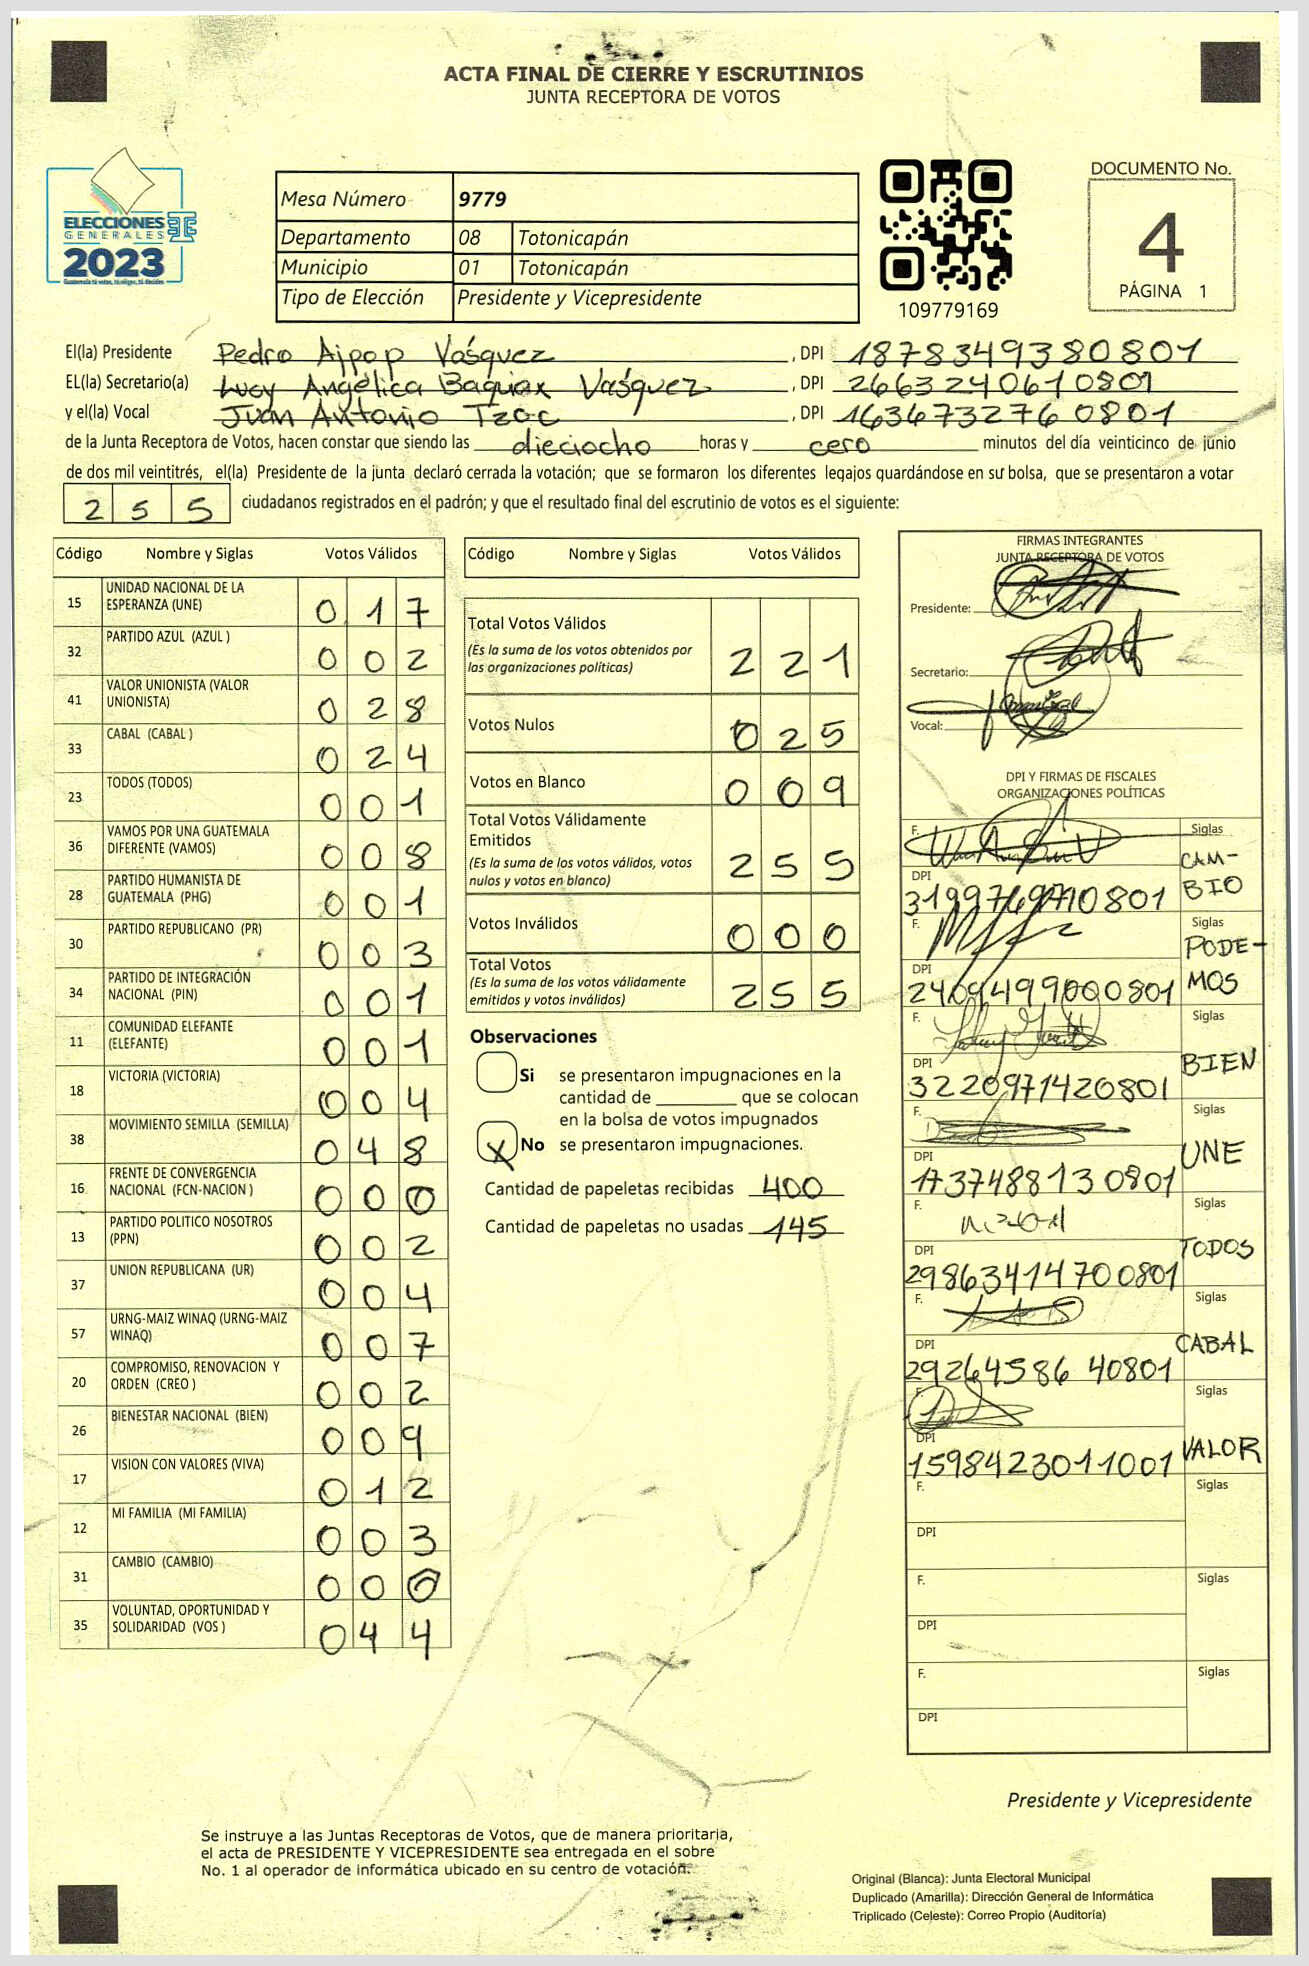 ACTA FINAL DE CIERRE Y ESCRUTINIOS
JUNTA RECEPTORA DE VOTOS
ELECCIONES
GENERALES
2023
Mesa Número 9779
Departamento 08 Totonicapán
Municipio 01 Totonicapán
Tipo de Elección Presidente y Vicepresidente
109779169
DOCUMENTO No.
4
PÁGINA 1
El(la) Presidente Pedro Ajpop Vásquez, DPI 1878349380801
EL(la) Secretario(a) Lucy Angélica Baquiax Vásquez, DPI 2663240610801
y el(la) Vocal Juan Antonio Tzoc, DPI 1636732760801
de la Junta Receptora de Votos, hacen constar que siendo las dieciocho horas y cero minutos del día veinticinco de junio
de dos mil veintitrés, el(la) Presidente de la junta declaró cerrada la votación; que se formaron los diferentes legajos quardándose en su bolsa, que se presentaron a votar
255 ciudadanos registrados en el padrón; y que el resultado final del escrutinio de votos es el siguiente:
Código Nombre y Siglas Votos Válidos
15 UNIDAD NACIONAL DE LA ESPERANZA (UNE) 017
32 PARTIDO AZUL (AZUL ) 002
41 VALOR UNIONISTA (VALOR UNIONISTA) 028
33 CABAL (CABAL ) 024
23 TODOS (TODOS) 001
36 VAMOS POR UNA GUATEMALA DIFERENTE (VAMOS) 008
28 PARTIDO HUMANISTA DE GUATEMALA (PHG) 001
30 PARTIDO REPUBLICANO (PR) 003
34 PARTIDO DE INTEGRACIÓN NACIONAL (PIN) 001
11 COMUNIDAD ELEFANTE (ELEFANTE) 001
18 VICTORIA (VICTORIA) 004
38 MOVIMIENTO SEMILLA (SEMILLA) 048
16 FRENTE DE CONVERGENCIA NACIONAL (FCN-NACION ) 000
13 PARTIDO POLITICO NOSOTROS (PPN) 002
37 UNION REPUBLICANA (UR) 004
57 URNG-MAIZ WINAQ (URNG-MAIZ WINAQ) 007
20 COMPROMISO, RENOVACION Y ORDEN (CREO ) 002
26 BIENESTAR NACIONAL (BIEN) 009
17 VISION CON VALORES (VIVA) 012
12 MI FAMILIA (MI FAMILIA) 003
31 CAMBIO (CAMBIO) 000
35 VOLUNTAD, OPORTUNIDAD Y SOLIDARIDAD (VOS ) 044
Código Nombre y Siglas Votos Válidos
Total Votos Válidos 221
(Es la suma de los votos obtenidos por
las organizaciones políticas)
Votos Nulos 025
Votos en Blanco 009
Total Votos Válidamente
Emitidos 255
(Es la suma de los votos válidos, votos
nulos y votos en blanco)
Votos Inválidos 000
Total Votos 255
(Es la suma de los votos válidamente
emitidos y votos inválidos)
Observaciones
Si se presentaron impugnaciones en la
cantidad de ________ que se colocan
en la bolsa de votos impugnados
X No se presentaron impugnaciones.
Cantidad de papeletas recibidas 400
Cantidad de papeletas no usadas 145
FIRMAS INTEGRANTES
JUNTA RECEPTORA DE VOTOS
Presidente:
Secretario:
Vocal:
DPI Y FIRMAS DE FISCALES
ORGANIZACIONES POLÍTICAS
F. Siglas CAM-BIO
DPI
3199769710801
F. Siglas PODE-MOS
DPI
2409499000801
F. Siglas BIEN
DPI
3220971420801
F. Siglas UNE
DPI
1737488130801
F. Siglas TODOS
DPI
2986341470801
F. Siglas CABAL
DPI
2926458640801
F. Siglas VALOR
DPI
1598423011001
F. Siglas
DPI
F. Siglas
DPI
F. Siglas
DPI
Presidente y Vicepresidente
Se instruye a las Juntas Receptoras de Votos, que de manera prioritaria,
el acta de PRESIDENTE Y VICEPRESIDENTE sea entregada en el sobre
No. 1 al operador de informática ubicado en su centro de votación.
Original (Blanca): Junta Electoral Municipal
Duplicado (Amarilla): Dirección General de Informática
Triplicado (Celeste): Correo Propio (Auditoría)